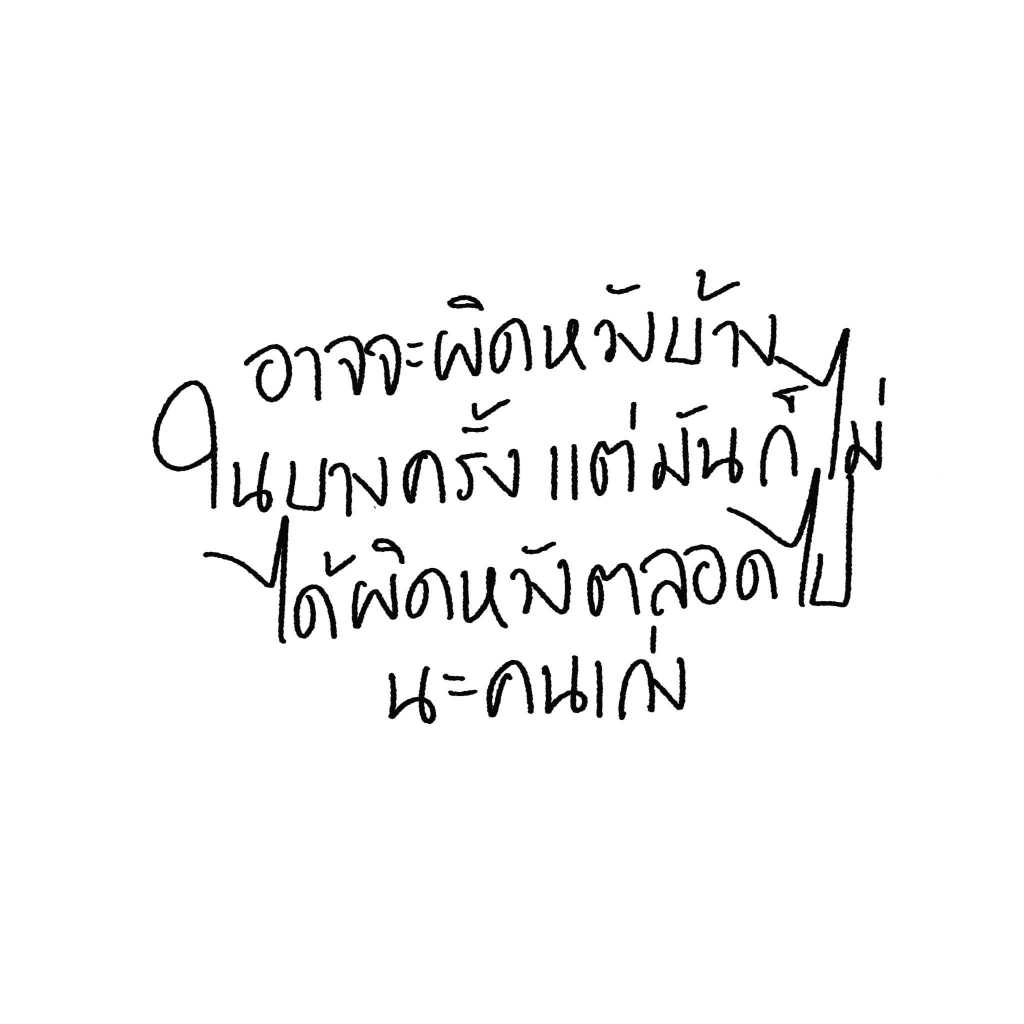 อาจจะผิดหวังบ้าง
ในบางครั้ง แต่มันก็ไม่
ได้ผิดหวังตลอดไป
นะคนเก่ง